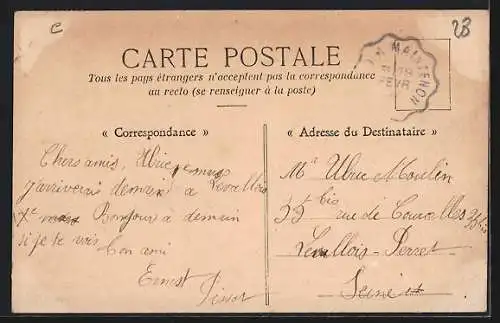 c
28
CARTE POSTALE
Tous les pays étrangers n'acceptent pas la correspondance
au recto (se renseigner à la poste)
MAINTENON
FEVR
« Correspondance »
« Adresse du Destinataire »
Chers amis,
j'arriverai demain a Levallois
Bonjour à demain
si je te vois
ton ami
Ernest
Mr Ulric Moulin
35 bis rue de Courcelles 35 bis
Levallois-Perret
Seine